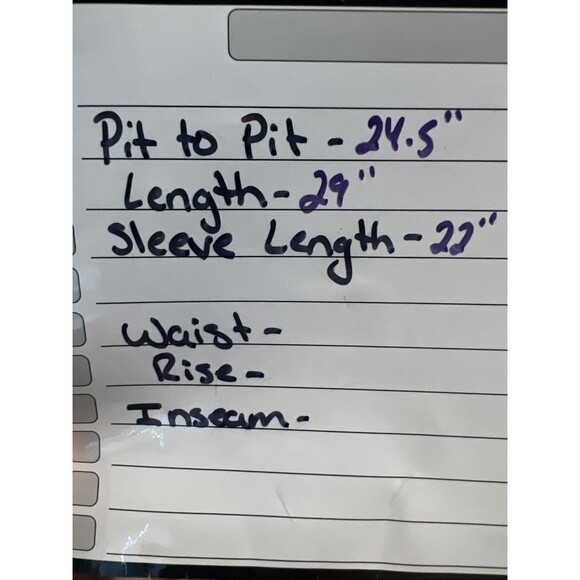 Pit to Pit - 24.5"
Length - 29"
Sleeve Length - 22"
Waist -
Rise -
Inseam -